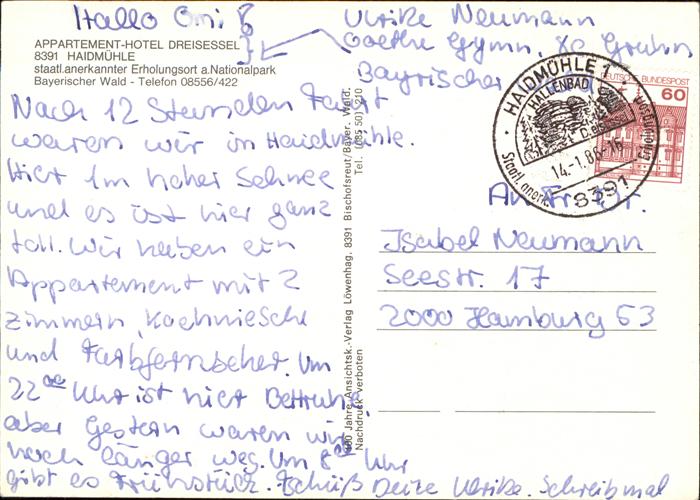 Hallo Omi
Ulrike Neumann
Goethe Gymn, 8c
Bayrischer
APPARTEMENT-HOTEL DREISESSEL
8391 HAIDMÜHLE
staatl.anerkannter Erholungsort a.Nationalpark
Bayerischer Wald - Telefon 08556/422
Nach 12 Stunden Fahrt
waren wir in Haidmühle.
Hier 1m hoher Schnee
und es ist hier ganz
toll. Wir haben ein
Appartement mit 2
Zimmern, Kochniesche
und Farbfernseher. Um
22⁰⁰ Uhr ist hier Bettruhe,
aber gestern waren wir
noch länger weg. Um 8⁰⁰ Uhr
gibt es Frühstück. Tschüß Deine Ulrike. Schreib mal
Jahre Ansichtsk.-Verlag Löwenhag, 8391 Bischofsreut/Bayer. Wald. Tel. (085 50) 210
Nachdruck verboten
HAIDMÜHLE 1
HALLENBAD
14.-1.86-16
Staatl. anerk.
8391
DEUTSCHE BUNDESPOST
60
An Fr.
Isabel Neumann
Seestr. 17
2000 Hamburg 63